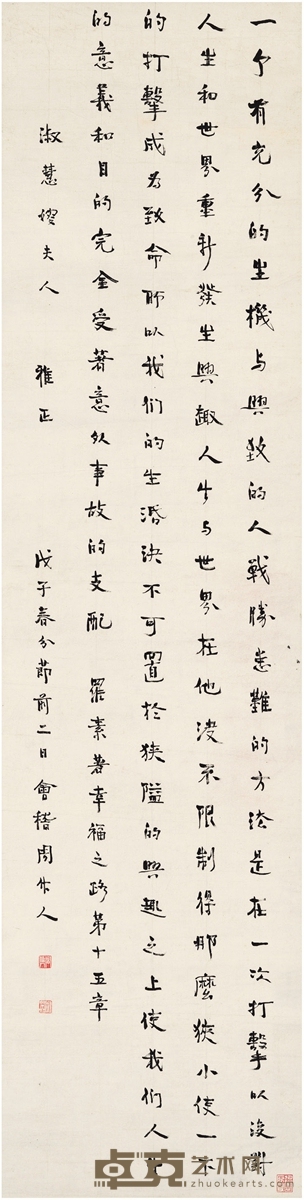 一个有充分的生機与興致的人戰勝患難的方法是在一次打擊以後對
人生和世界重新發生興趣人生与世界在他決不限制得那麼狹小使一下
的打擊成為致命所以我們的生活決不可置於狹隘的興趣之上使我們人生
的意義和目的完全受著意外事故的支配 羅素著幸福之路第十五章
淑慧嫂夫人 雅正 戊子春分節前二日會稽周作人
卓克艺术网
zhuokearts.com